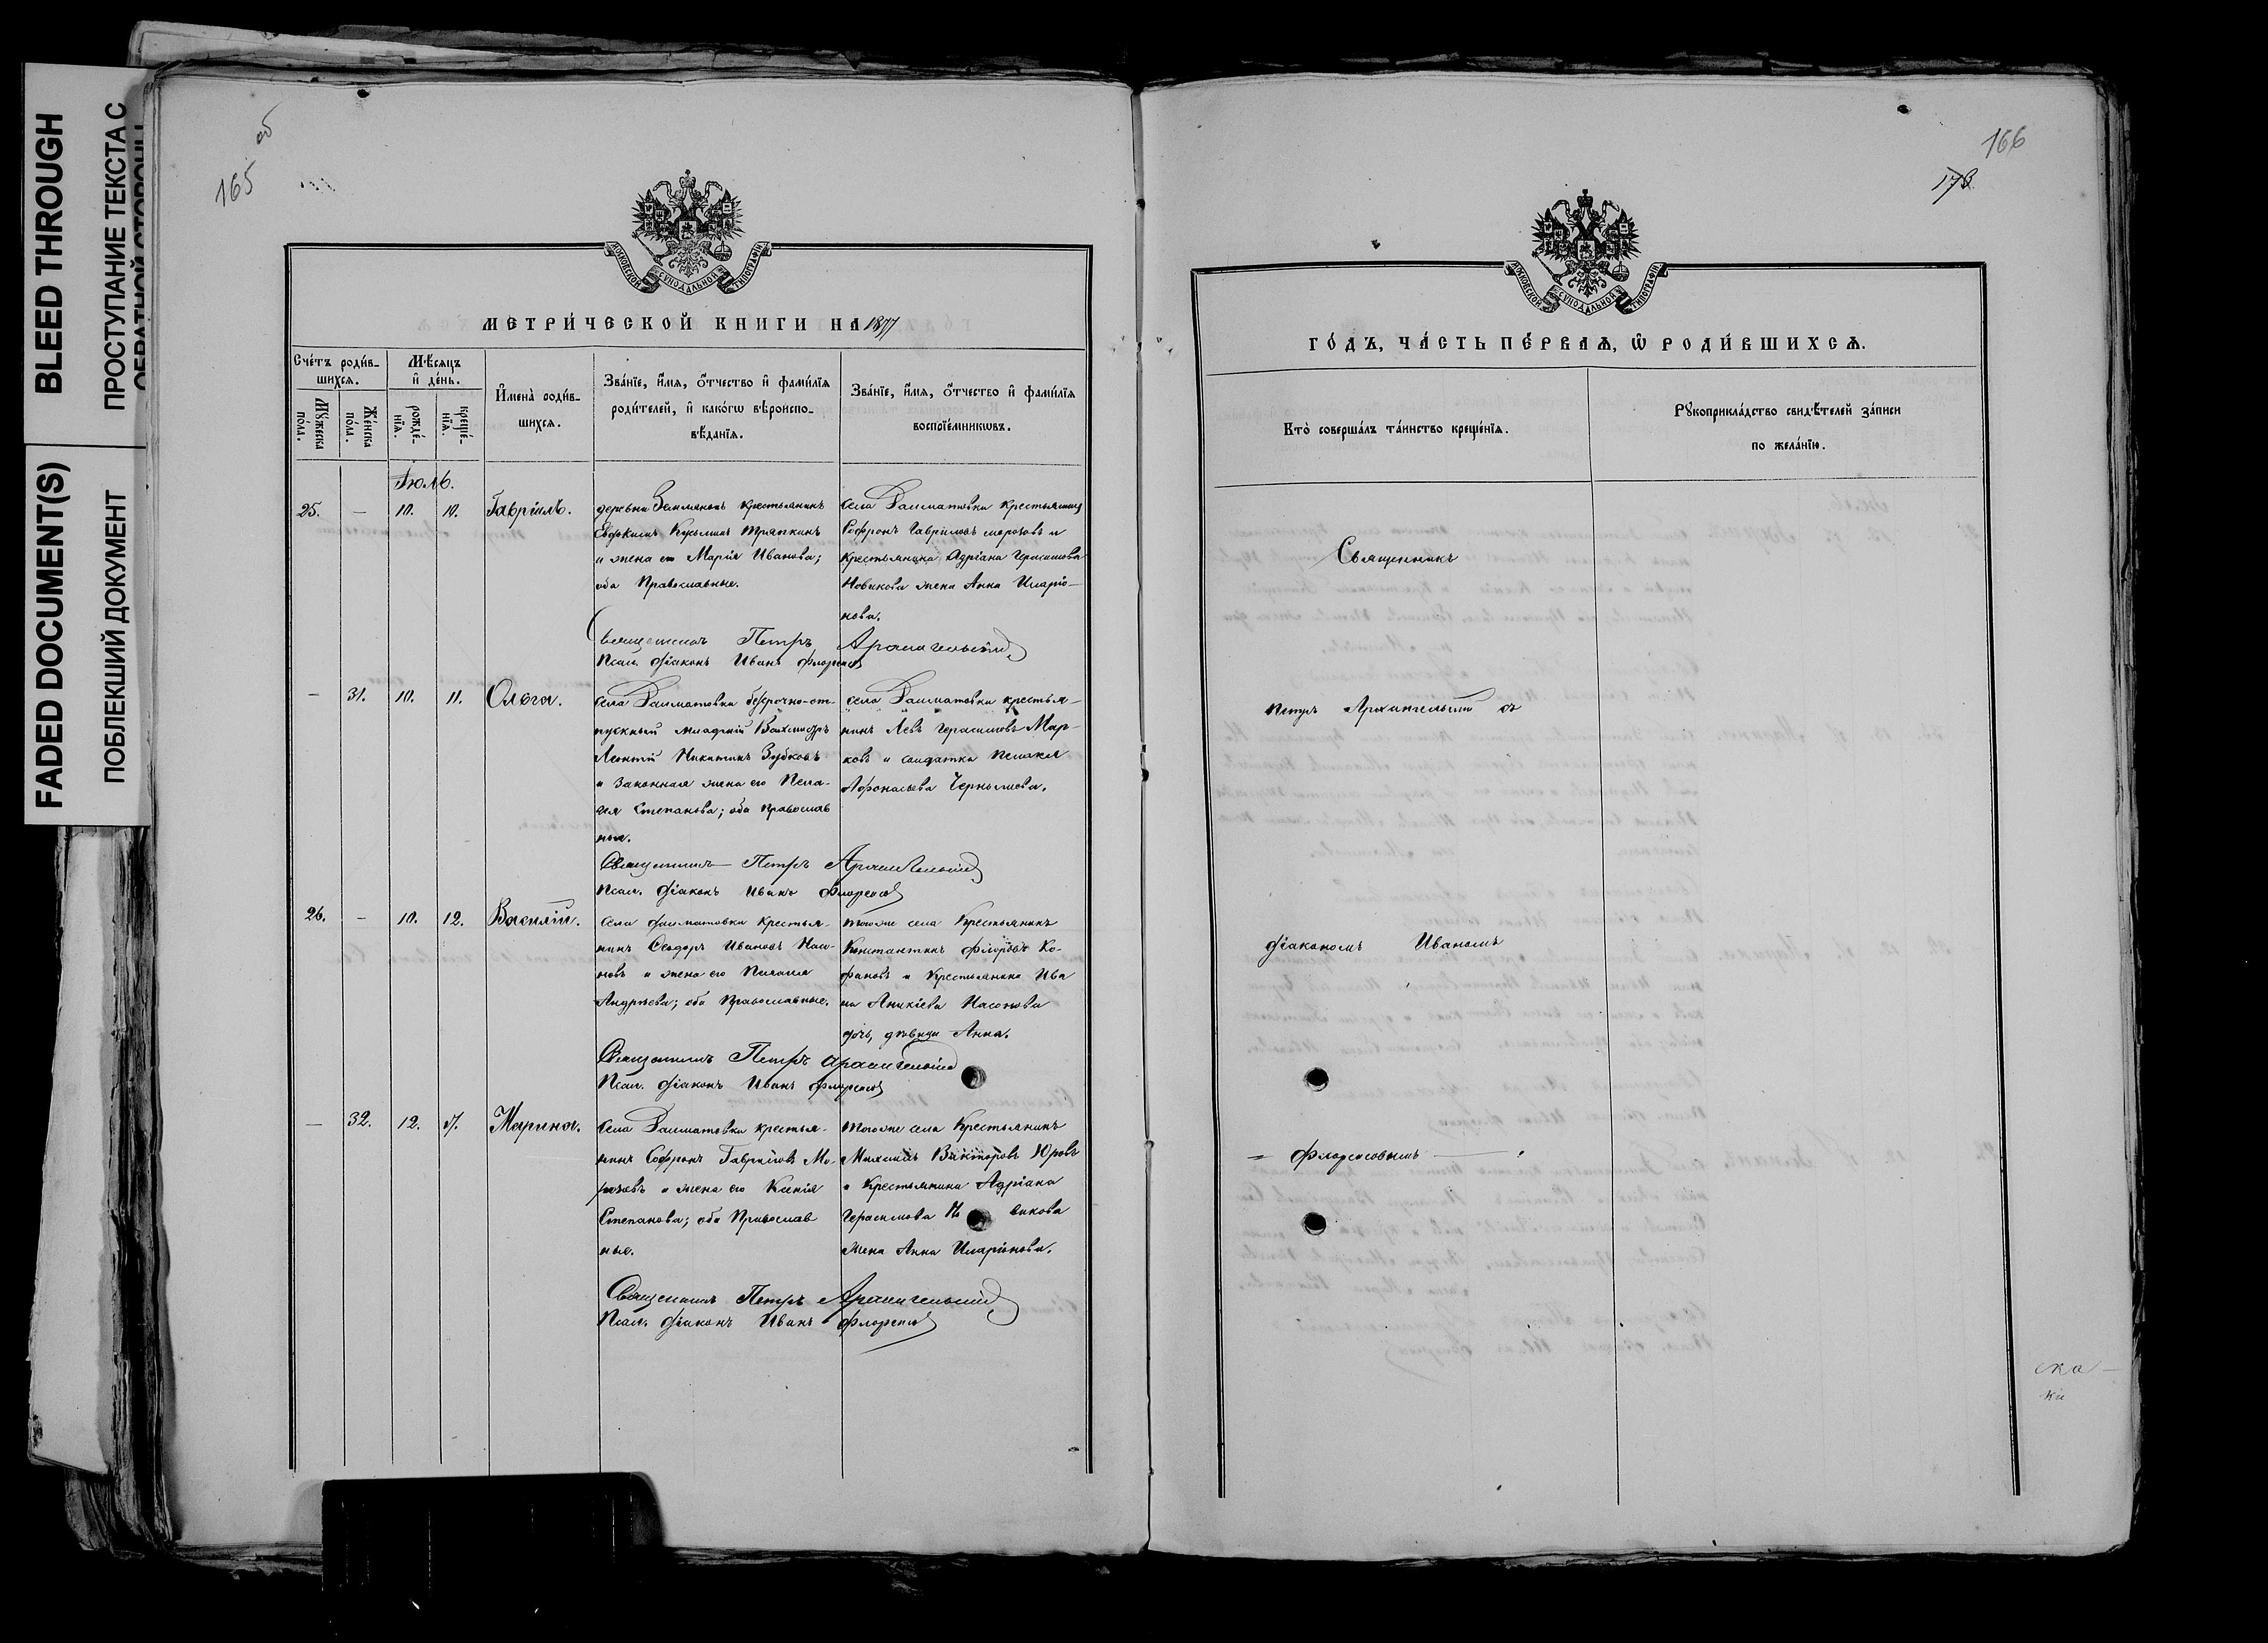 BLEED THROUGH
ПРОСТУПАНИЕ ТЕКСТА С
ОБРАТНОЙ СТОРОНЫ
FADED DOCUMENT(S)
ПОБЛЕКШИЙ ДОКУМЕНТ
165 об
МОСКОВСКОЙ СѴНОДАЛЬНОЙ ТИПОГРАФІИ
МЕТРИ́ЧЕСКОЙ КНИГИ НА 1877
Сче́тъ роди́в-
шихсѧ.
Мѣ́сѧцъ
и҆ де́нь.
И҆мена̀ роди́в-
шихсѧ.
Зва́нїе, и҆́мѧ, ѻ҆́тчество и҆ фами́лїѧ
роди́телей, и҆ како́гѡ вѣроиспо-
вѣ́данїѧ.
Зва́нїе, и҆́мѧ, ѻ҆́тчество и҆ фами́лїѧ
воспрїе́мникѡвъ.
Мꙋ́жеска
по́ла.
Же́нска
по́ла.
рожде́-
нїѧ.
креще́-
нїѧ.
Іюль.
25. — 10. 10. Гавріилъ.
деревни крестьянинъ
Евфимій Кузьминъ Тряпкинъ
и жена его Марія Иванова;
оба Православные.
села крестьянинъ
Софронъ Гавриловъ Морозовъ и
крестьянина Адріана Герасимова
Новикова жена Анна Иларіо-
нова.
Священникъ Петръ Архангельскій
Псал. Діаконъ Иванъ Флоренсовъ
— 31. 10. 11. Ольга.
села безсрочно-от-
пускный младшій Вахмистръ
Леонтій Никитинъ Зубковъ
и законная жена его Пела-
гея Степанова; оба православ
ные.
села крестья-
нинъ Левъ Герасимовъ Мар-
ковъ и солдатка Пелагея
Афонасьева Чернышева.
Священникъ Петръ Архангельскій
Псал. Діаконъ Иванъ Флоренсовъ
26. — 10. 12. Василій.
села крестья-
нинъ Ѳеодоръ Ивановъ Насо-
новъ и жена его Пелагея
Андреева; оба Православные.
тогоже села Крестьянинъ
Константинъ Ко-
фановъ и Крестьянина Ива
на Аникіева Насонова
дочь, дѣвица Анна.
Священникъ Петръ Архангельскій
Псал. Діаконъ Иванъ Флоренсовъ
— 32. 12. 17. Марина.
села крестья-
нинъ Софронъ Гавриловъ Мо-
розовъ и жена его Ксенія
Степанова; оба Православ
ные.
тогоже села Крестьянинъ
Михаилъ Викторовъ Юровъ
и Крестьянина Адріана
Герасимова Но викова
жена Анна Иларіонова.
Священникъ Петръ Архангельскій
Псал. Діаконъ Иванъ Флоренсовъ
166
173
МОСКОВСКОЙ СѴНОДАЛЬНОЙ ТИПОГРАФІИ
ГО́ДЪ, ЧА́СТЬ ПЕ́РВАѦ, Ѡ҆ РОДИ́ВШИХСѦ.
Кто̀ соверша́лъ та́инство креще́нїѧ.
Рꙋкоприкла́дство свидѣ́телей за́писи
по жела́нїю.
Священникъ
Петръ Архангельскій съ
діакономъ Иваномъ
= Флоренсовымъ —
ка —
ки